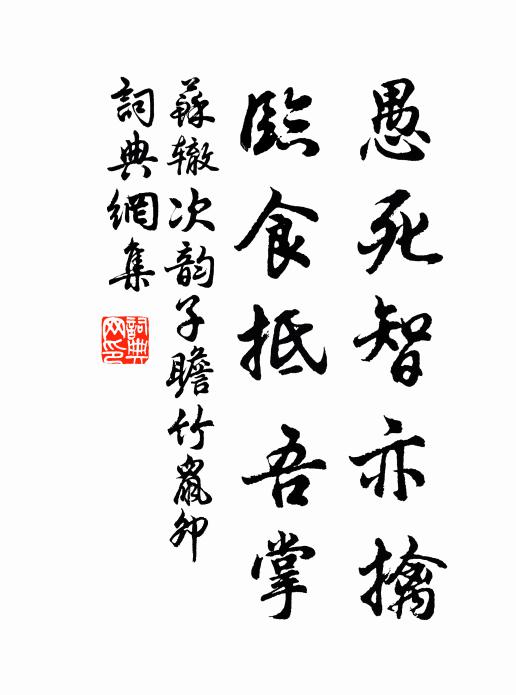 愚死智亦擒
臨食抵吾掌
蘇辙次韵子瞻竹鼠卯
詞典網集
詞典网印